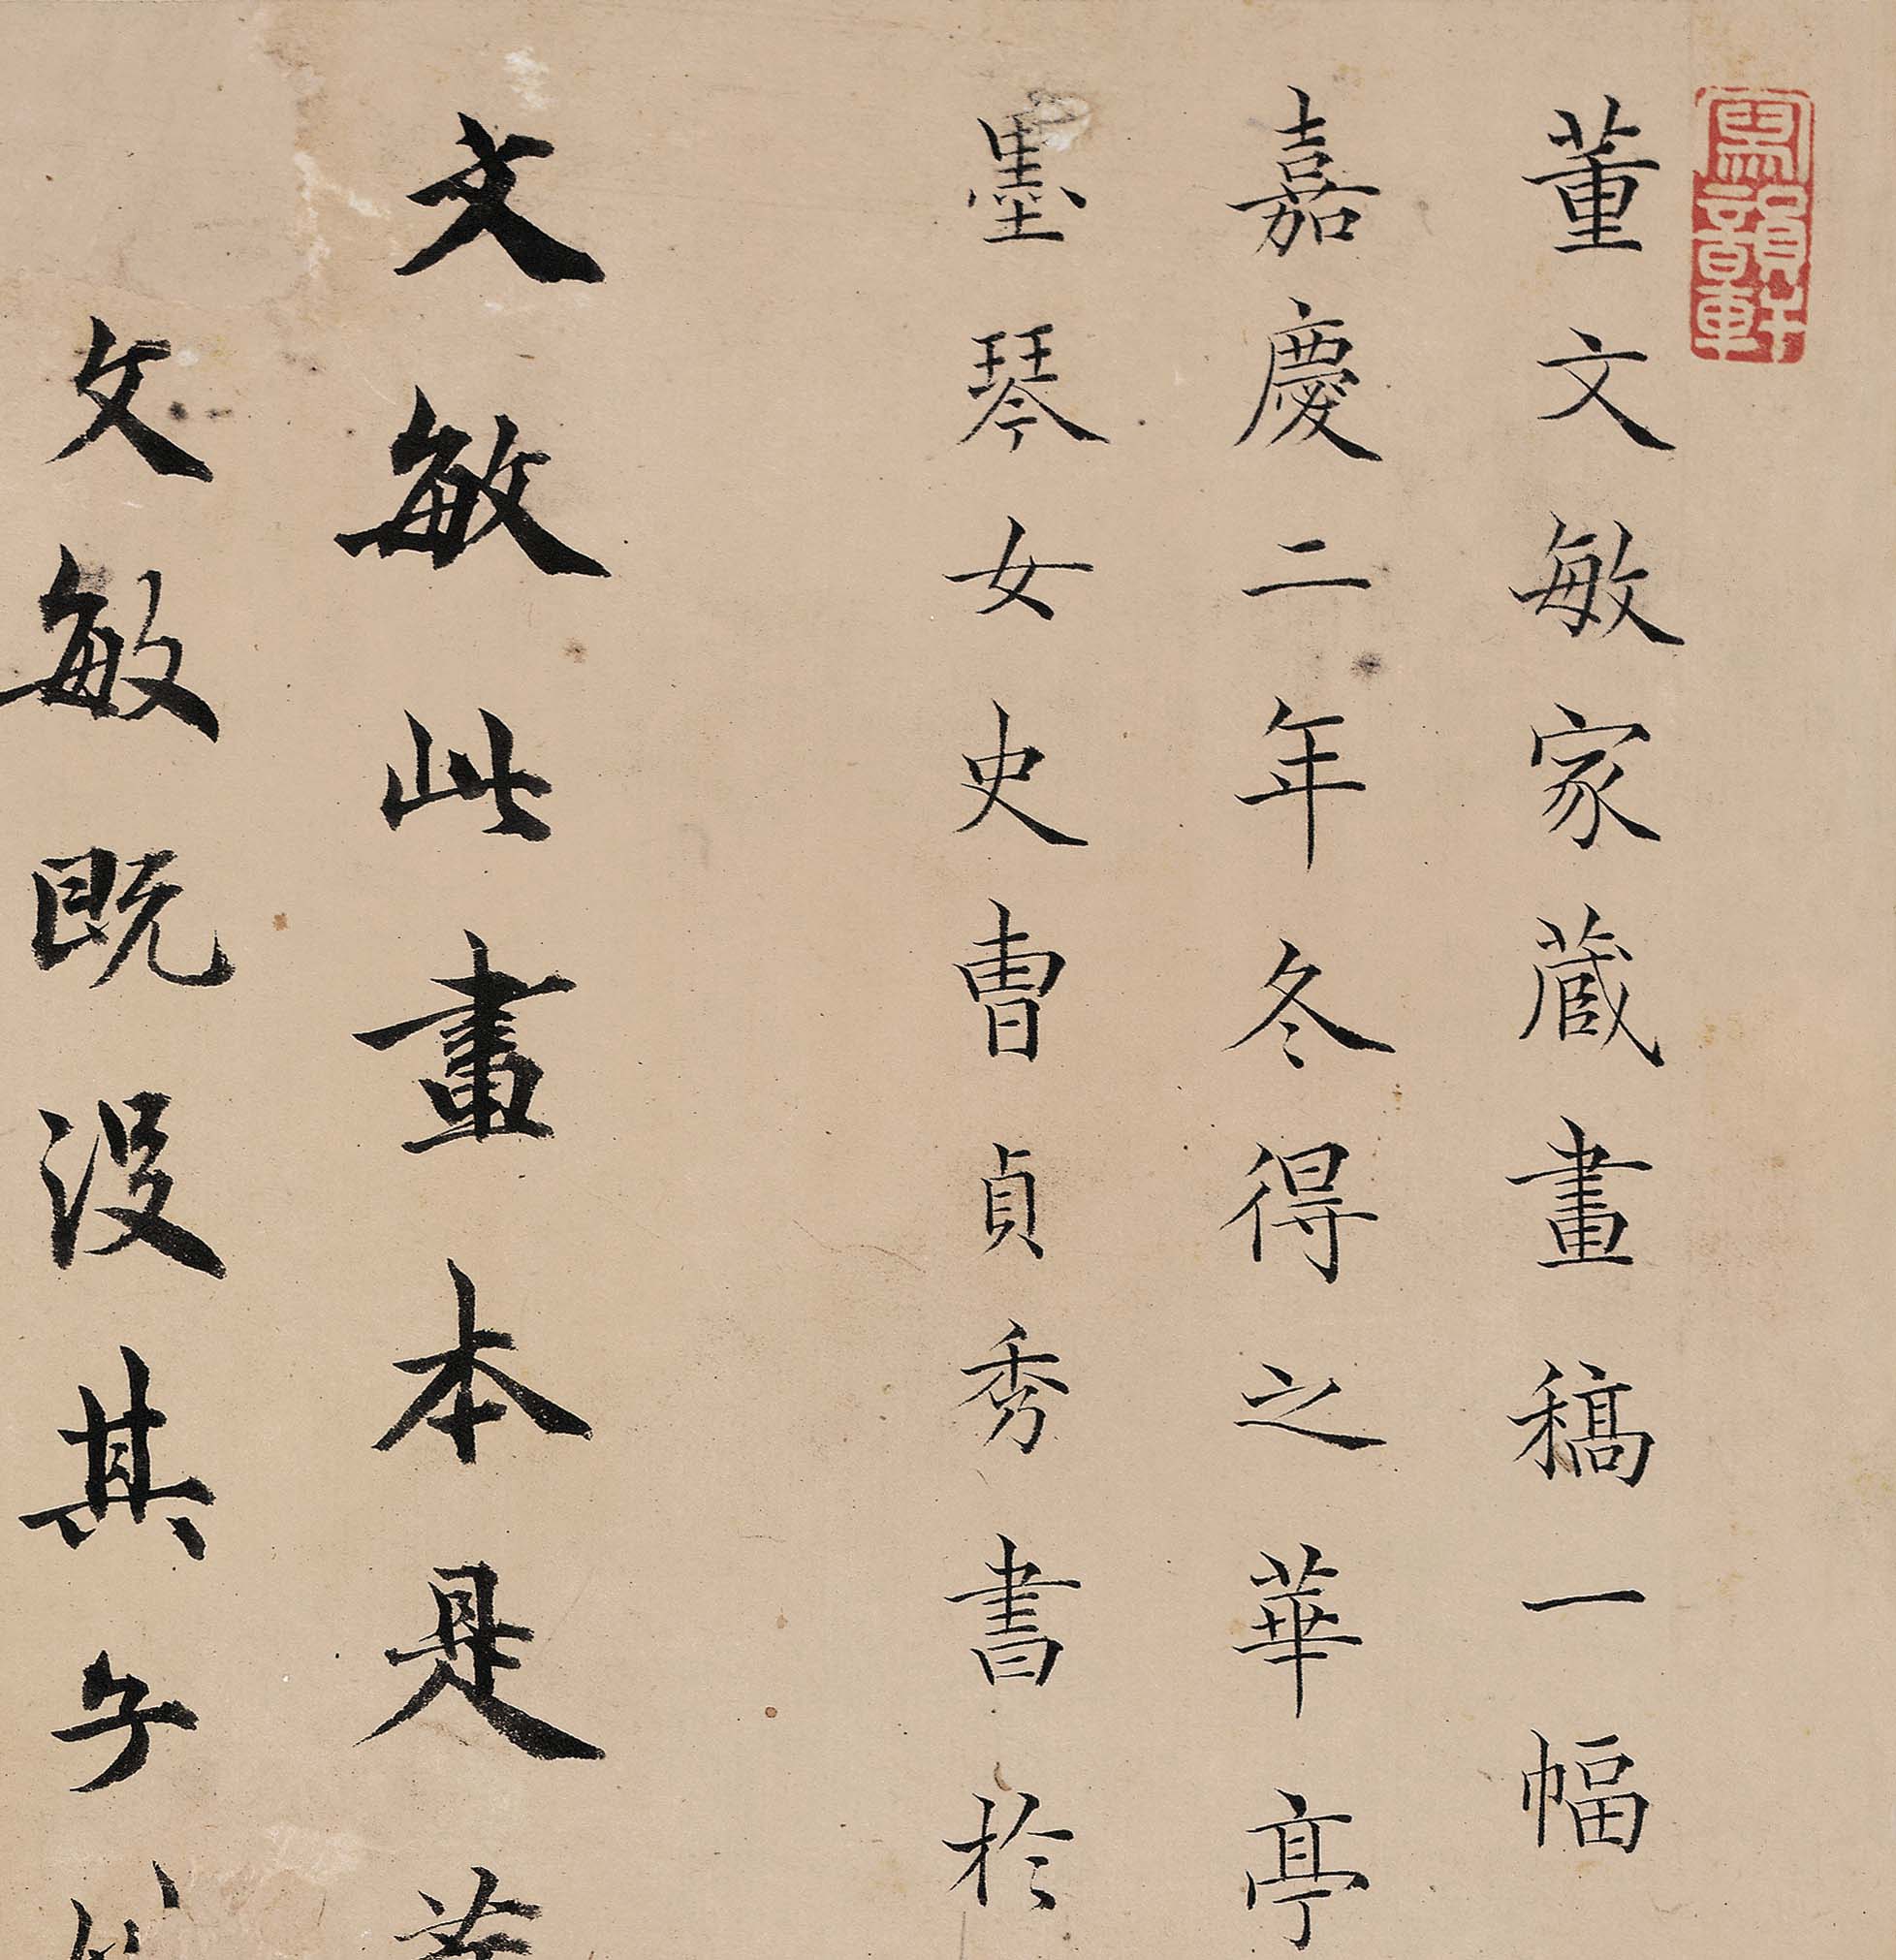 寫韻軒
董文敏家蔵畫稿一幅
嘉慶二年冬得之華亭
墨琴女史曹貞秀書於
文敏此畫本是
文敏既没其子